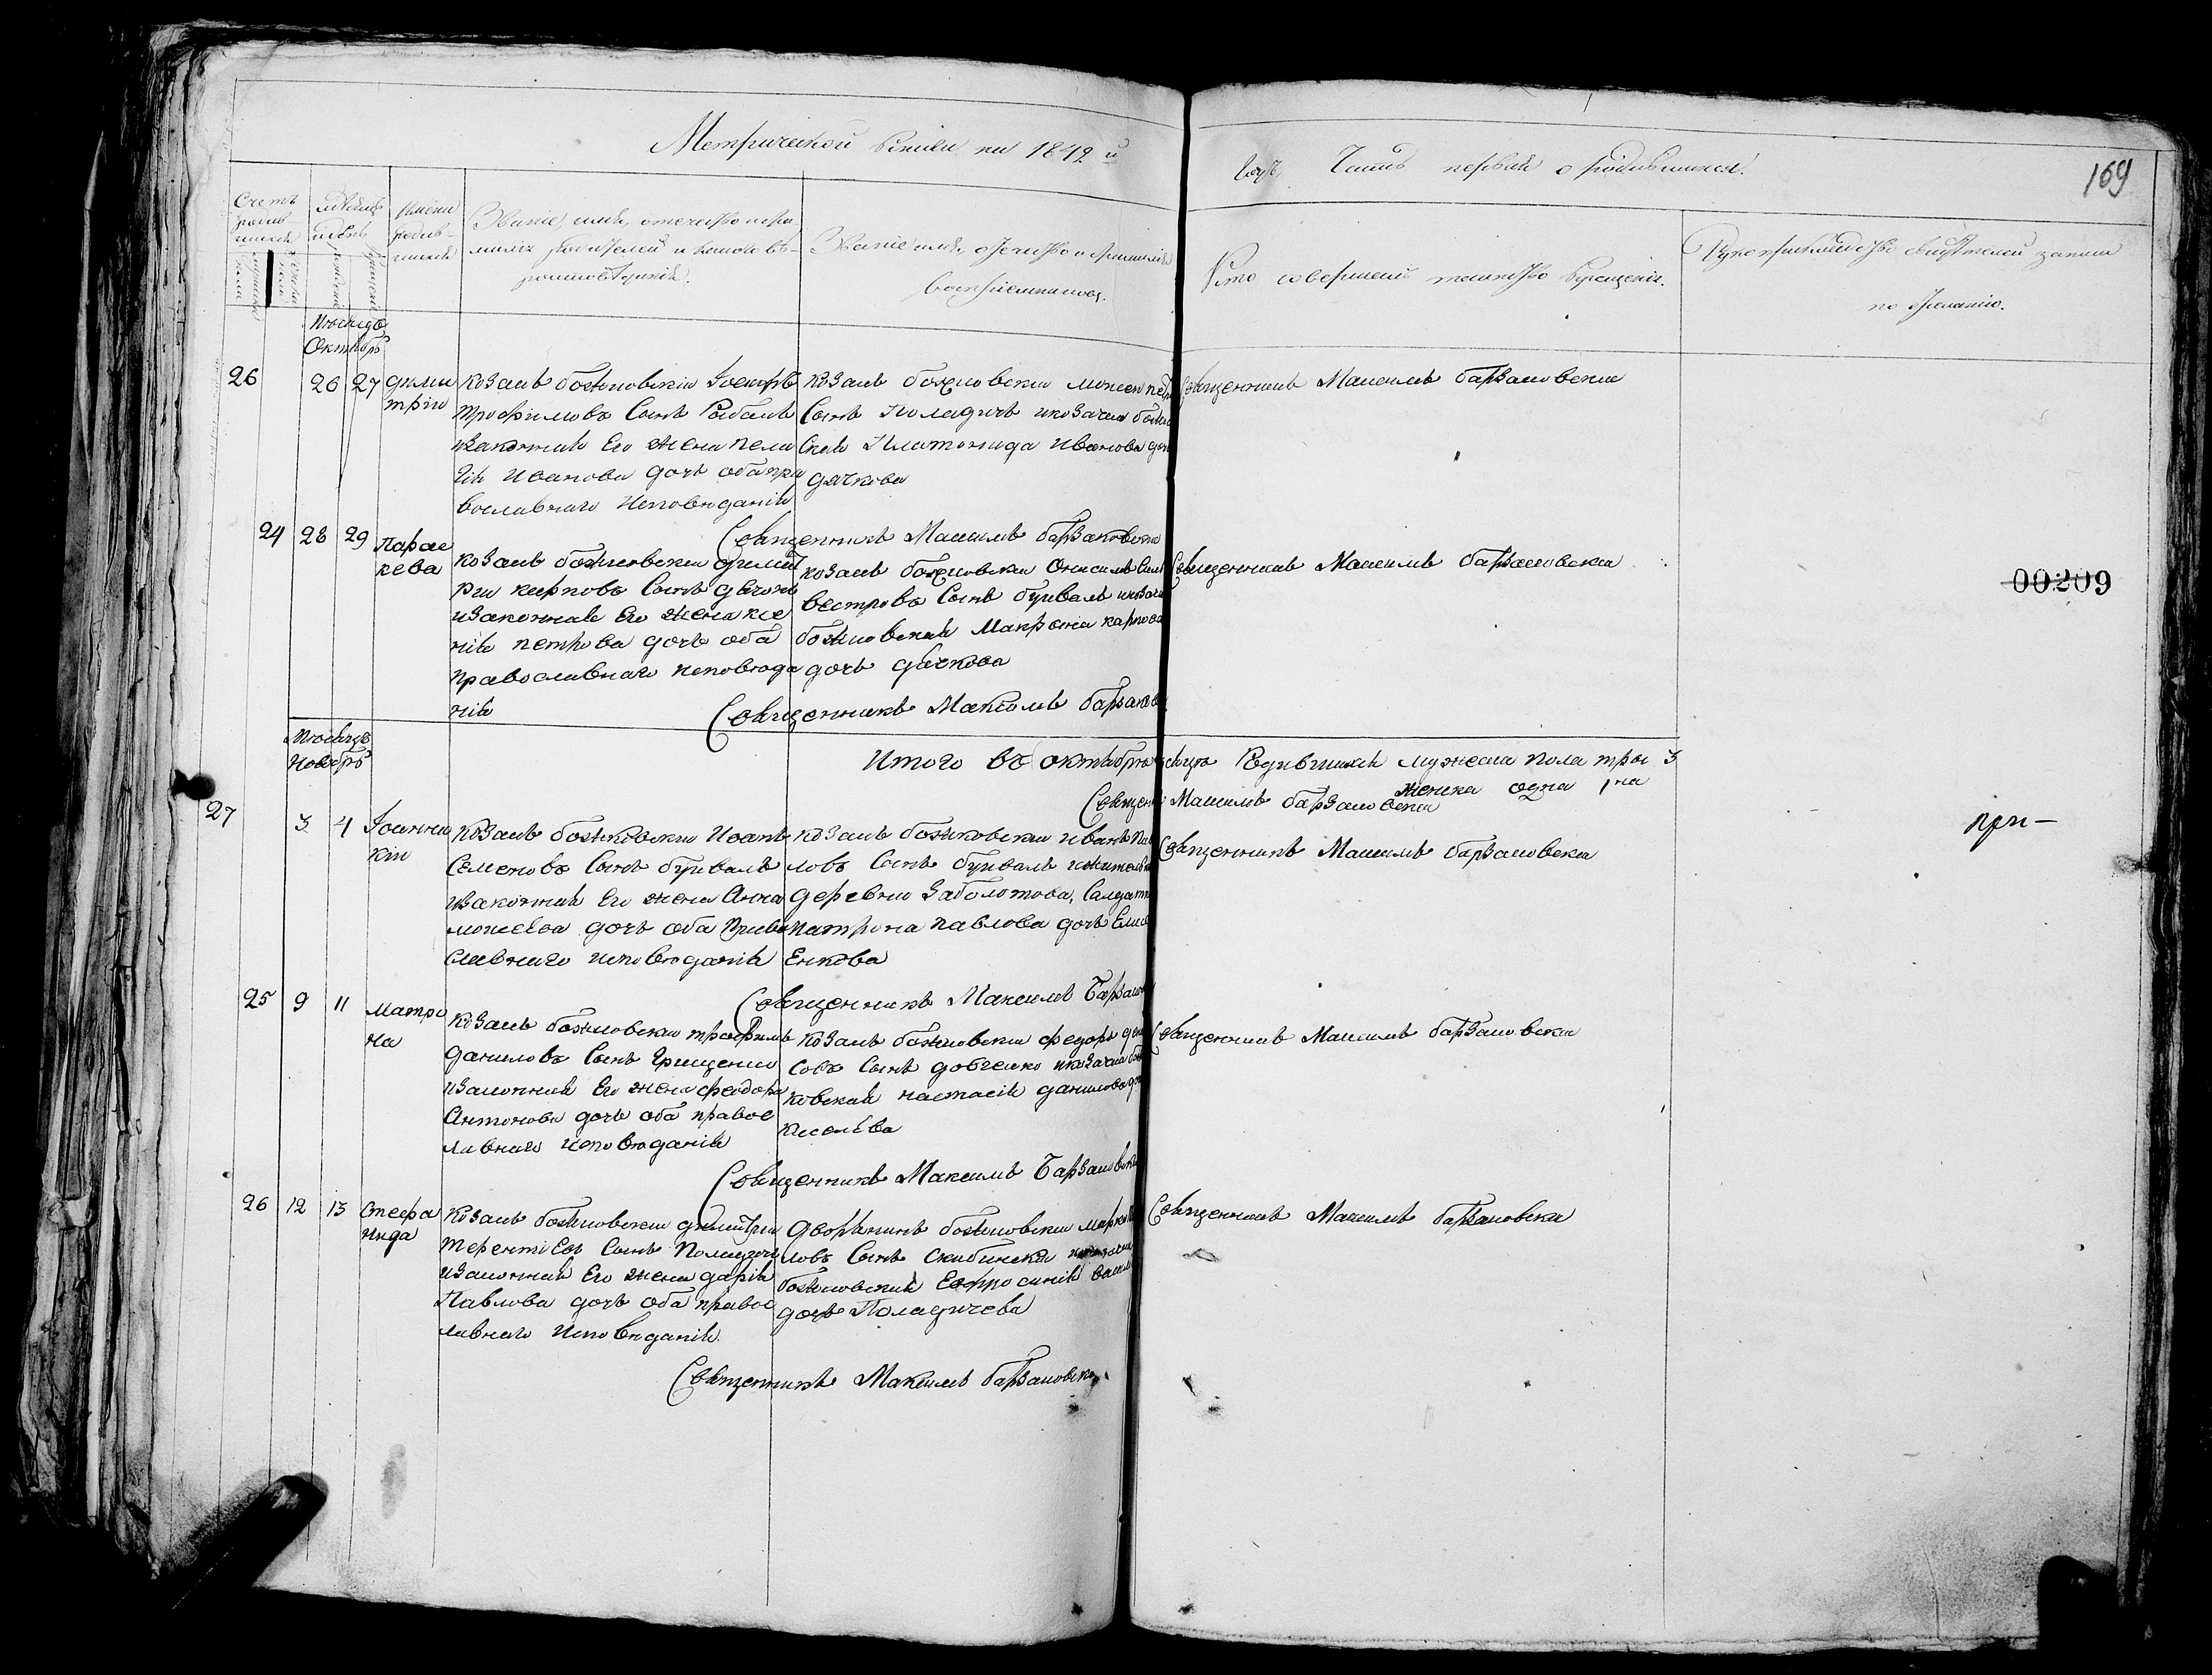 Метрической книги на 1849 й
годъ, Часть первая о родившихся.
169
Счетъ родив шихся
Мѣсяцъ и день
Имена родив- шихся
Званіе, имя, отечество и фа
милія родителей и какого вѣ-
роисповѣданія.
Званіе имя, отечество и фамилія
воспріемниковъ.
Кто совершалъ таинство крещенія.
Рукоприкладство свидѣтелей записи
по желанію.
Мѣсяцъ
Октябрь
26 26 27 Дими
трій
козакъ божковскій Іосифъ
Трофимовъ Сынъ Рыбалъ
изаконная Его жена Пела
гія Иванова дочь оба пра
вославнаго исповѣданія
козакъ божковскій моисей
Сынъ Поладичъ икозачка
Платонида Иванова
дячкова
Священникъ Максимъ барзаковскій
Священникъ Максимъ барзаковскій
24 28 29 Парас
кева
козакъ божковскій дими
рій карповъ Сынъ дячокъ
изаконная Его жена ксе
нія петрова дочь оба
православнаго исповѣда
нія
козакъ божковскій Онисимъ Сил
вестровъ Сынъ бугваль
божковская Макрона карпова
дочь дячкова
Священникъ Максимъ барзаковскій
Священникъ Максимъ барзаков
00209
Мѣсяцъ
Ноябрь
Итого въ октябрѣ мѣсяцѣ Родившихся мужеска пола три 3
женска одна 1на
Священ Максимъ барзаковскій
27 3 4 Іоанни
кій
козакъ божковскій Иванъ
Семеновъ Сынъ бугваль
изаконная Его жена Анна
моисеева дочь оба Право
славнаго исповѣданія
козакъ божковскій иванъ
ловъ Сынъ бугваль
деревни Заболотова, Салдат
матрона павлова дочь Елис
Енкова
Священникъ Максимъ барзаковскій
при —
Священникъ Максимъ Барзаков
25 9 11 Матро
на
козакъ божковскій трофимъ
даниловъ Сынъ Грищенко
изаконная Его жена феодора
Антонова дочь оба правос
лавнаго исповѣданія
козакъ божковскій федоръ
совъ Сынъ довгенко икозачка
ковская настасія данилова
киселева
Священникъ Максимъ барзаковскій
Священникъ Максимъ Барзаковскій
26 12 13 Стефа
нида
козакъ божковскій димитрій
терентіевъ Сынъ Поладичъ
изаконная Его жена дарія
Павлова дочь оба правос
лавнаго исповѣданія.
дворянинъ божковскій марко
ловъ Сынъ Скибинскій
божковская Евфросинія
дочь Поладичева
Священникъ Максимъ барзаковскій
Священникъ Максимъ барзаковск